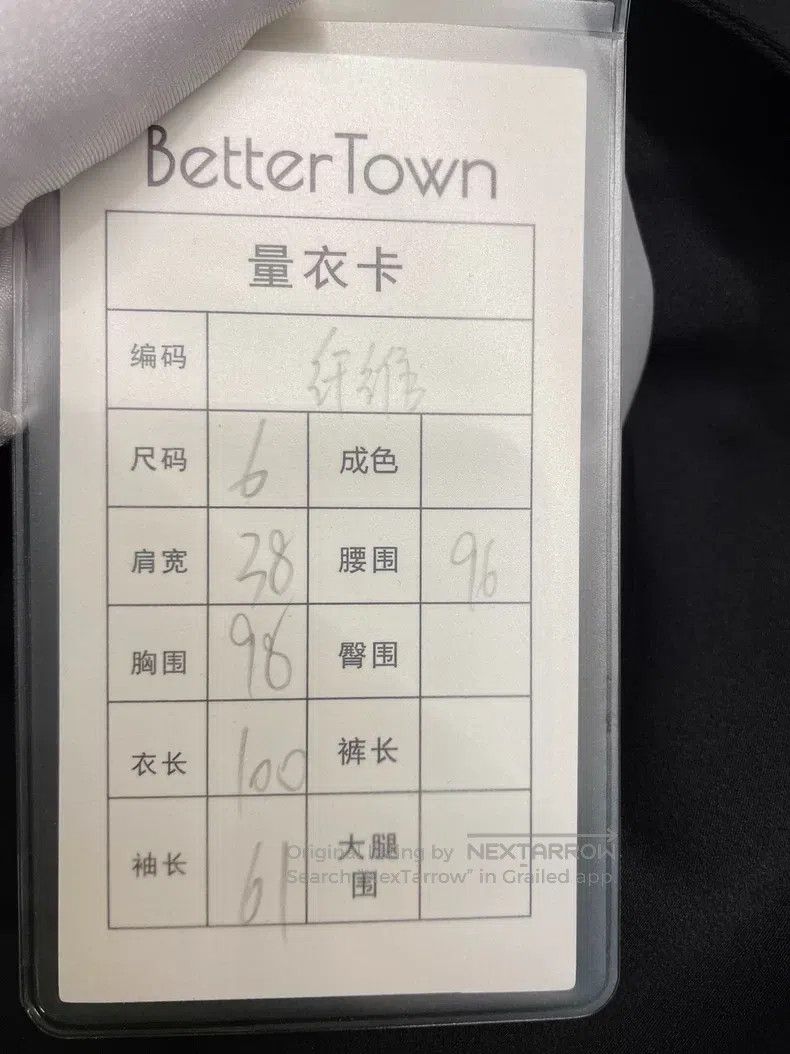 BetterTown
量衣卡
编码 纤维
尺码 6 成色
肩宽 38 腰围 96
胸围 98 臀围
衣长 100 裤长
袖长 61 大腿围
Original listing by NEXTARROW
Search "NexTarrow" in Grailed app